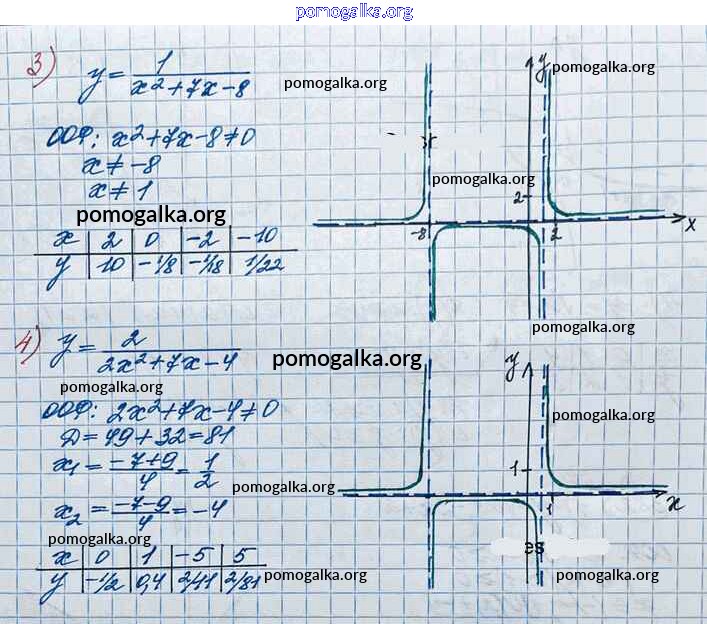 pomogalka.org
3) y = 1/(x²+7x-8) pomogalka.org
ООФ: x²+7x-8≠0
x ≠ -8
x ≠ 1
pomogalka.org
x | 2 | 0 | -2 | -10
y | 10 | -1/8 | -1/18 | 1/22
y pomogalka.org
pomogalka.org
2
-8 2 x
pomogalka.org
4) y = 2/(2x²+7x-4) pomogalka.org
pomogalka.org
ООФ: 2x²+7x-4≠0
Д = 49+32 = 81
x₁ = (-7+9)/4 = 1/2
pomogalka.org
x₂ = (-7-9)/4 = -4
pomogalka.org
x | 0 | 1 | -5 | 5
y | -1/2 | 0,4 | 2/11 | 2/81 pomogalka.org
y
pomogalka.org
1
1 x
es
pomogalka.org